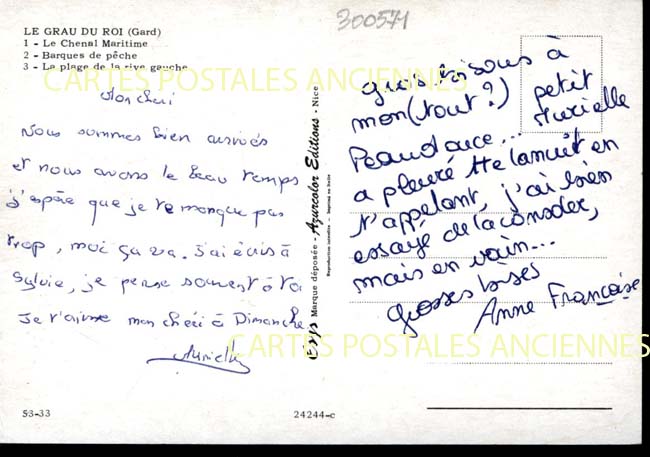 300571
LE GRAU DU ROI (Gard)
1 - Le Chenal Maritime
2 - Barques de pêche
3 - La plage de la rive gauche
CARTES POSTALES ANCIENNES
Mon cheri
Nous sommes bien arrivés
et nous avons le beau temps
j'espère que je te manque pas
trop, moi ça va. J'ai écris à
Sylvie, je pense souvent à toi
Je t'aime mon chéri à Dimanche
Murielle
53-33
Marque déposée - Azurcolor Editions - Nice
Reproduction interdite - Imprimé en Italie
24244-c
Gros bisous à
mon (tout?) petit
Murielle
Peaudouce...
a pleuré tte la nuit en
t'appelant, j'ai bien
essayé de la consoler,
mais en vain...
Grosses bises
Anne Françoise
CARTES POSTALES ANCIENNES